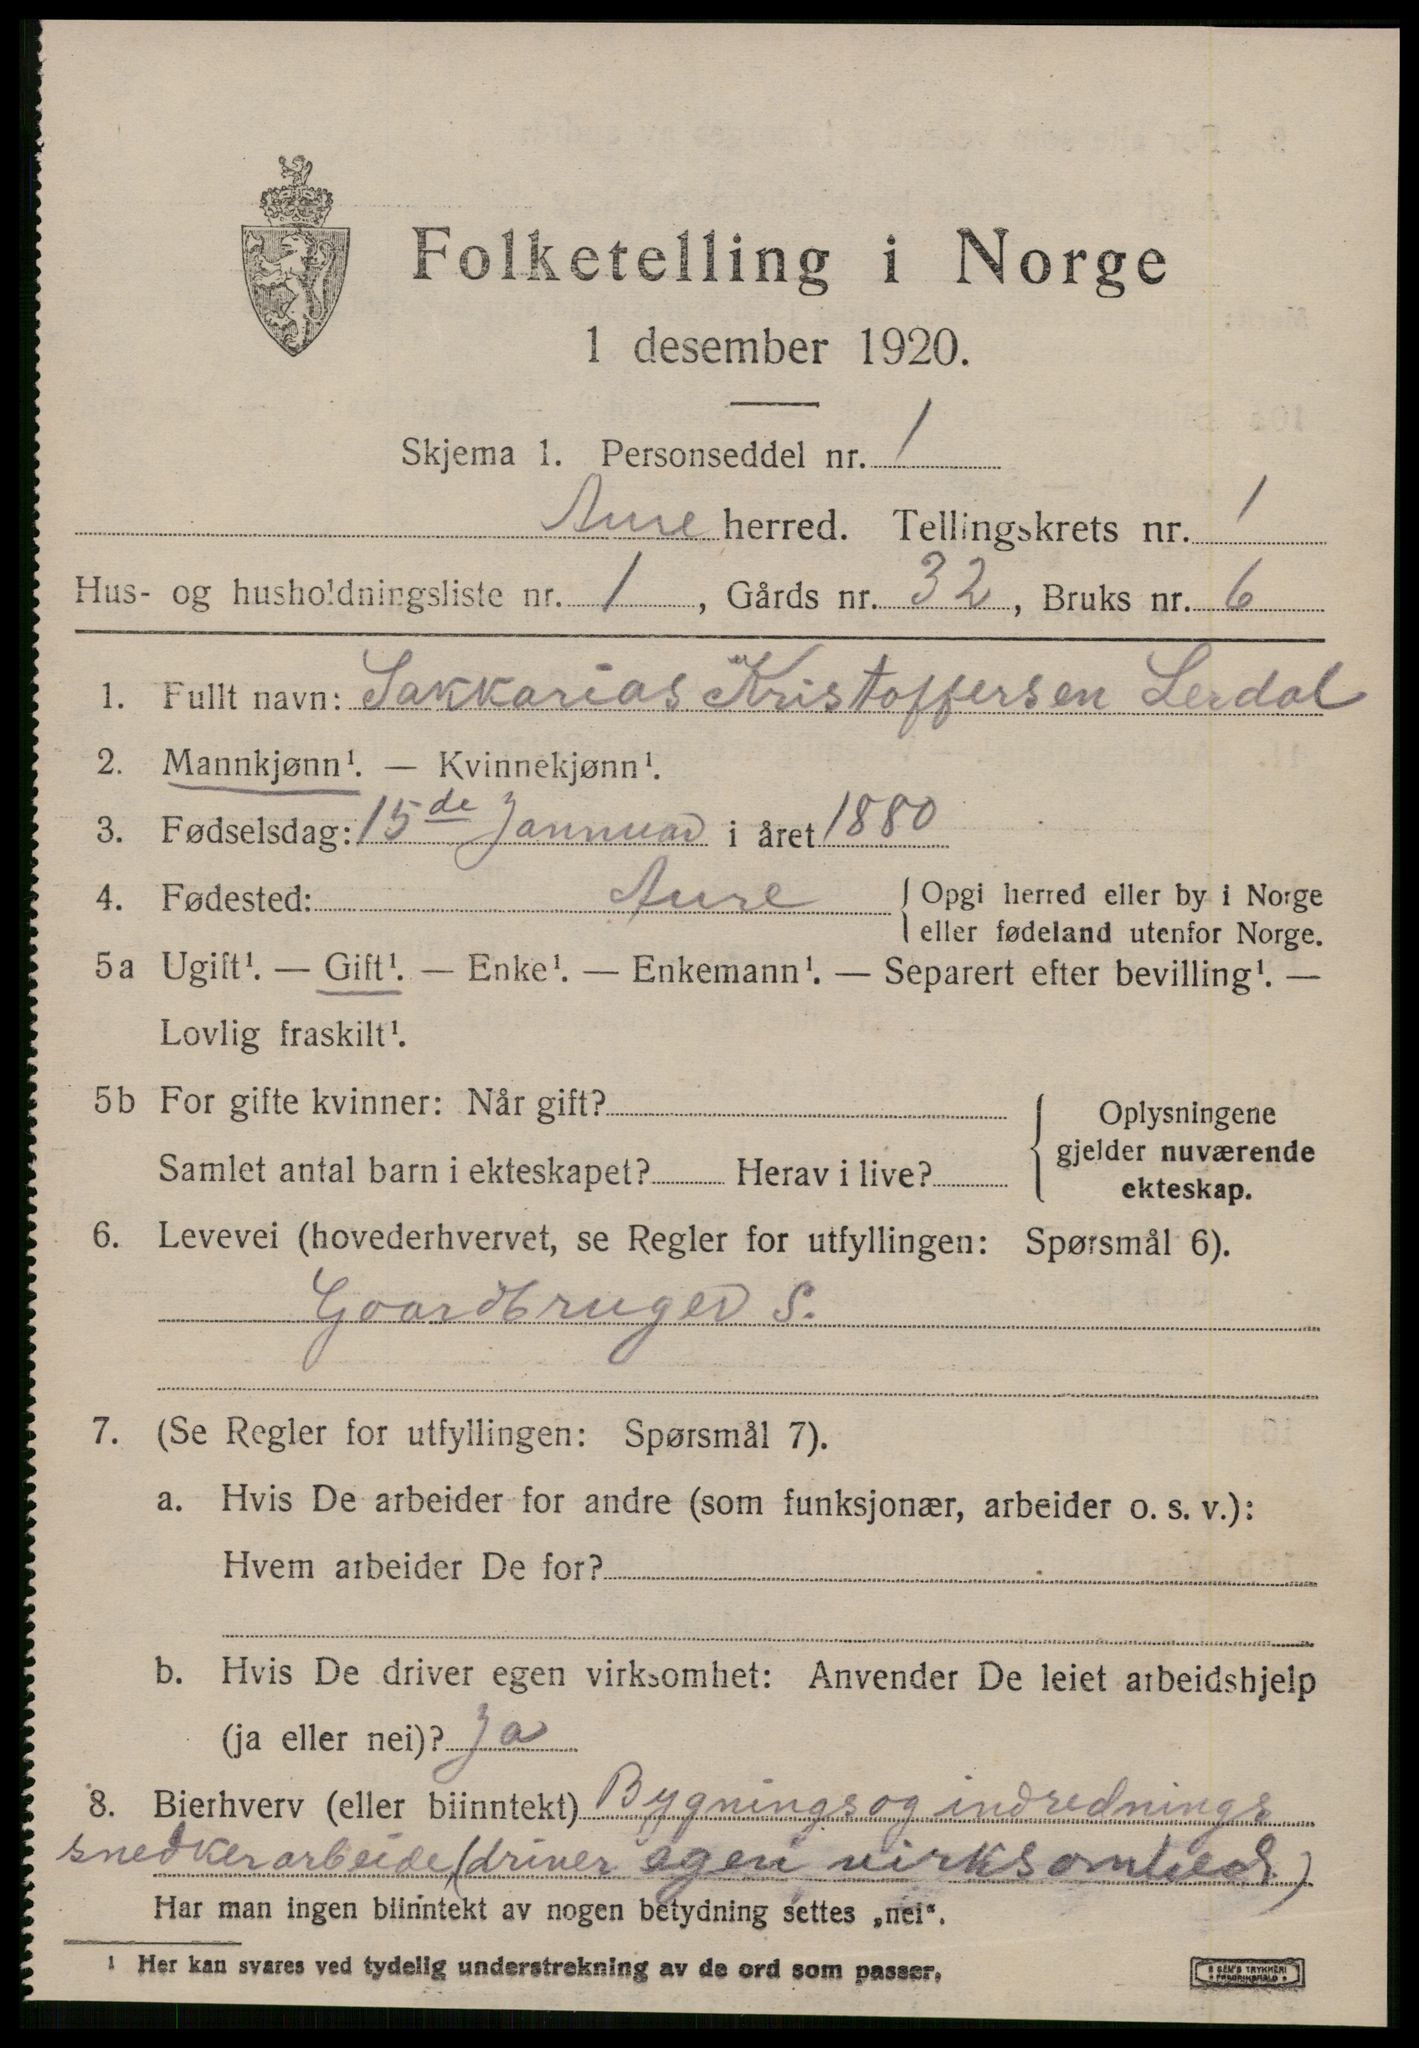 Folketelling i Norge
1 desember 1920.
Skjema 1. Personseddel nr. 1
Aure herred. Tellingskrets nr. 1
Hus- og husholdningsliste nr. 1, Gårds nr. 32, Bruks nr. 6
1. Fullt navn: Sakkarias Kristoffersen Lerdal
2. Mannkjønn¹. — Kvinnekjønn¹.
3. Fødselsdag: 15de Jannuar i året 1880
4. Fødested: Aure { Opgi herred eller by i Norge
eller fødeland utenfor Norge.
5a Ugift¹. — Gift¹. — Enke¹. — Enkemann¹. — Separert efter bevilling¹. —
Lovlig fraskilt¹.
5b For gifte kvinner: Når gift? { Oplysningene
gjelder nuværende
Samlet antal barn i ekteskapet? Herav i live? ekteskap.
6. Levevei (hovederhvervet, se Regler for utfyllingen: Spørsmål 6).
Goardbruger S.
7. (Se Regler for utfyllingen: Spørsmål 7).
a. Hvis De arbeider for andre (som funksjonær, arbeider o. s. v.):
Hvem arbeider De for?
b. Hvis De driver egen virksomhet: Anvender De leiet arbeidshjelp
(ja eller nei)? Ja
8. Bierhverv (eller biinntekt) Bygnings og indrednings
snedkerarbeide (driver egen virksomhed)
Har man ingen biinntekt av nogen betydning settes „nei“.
¹ Her kan svares ved tydelig understrekning av de ord som passer.
SEM'S TRYKKERI
FREDRIKSHALD